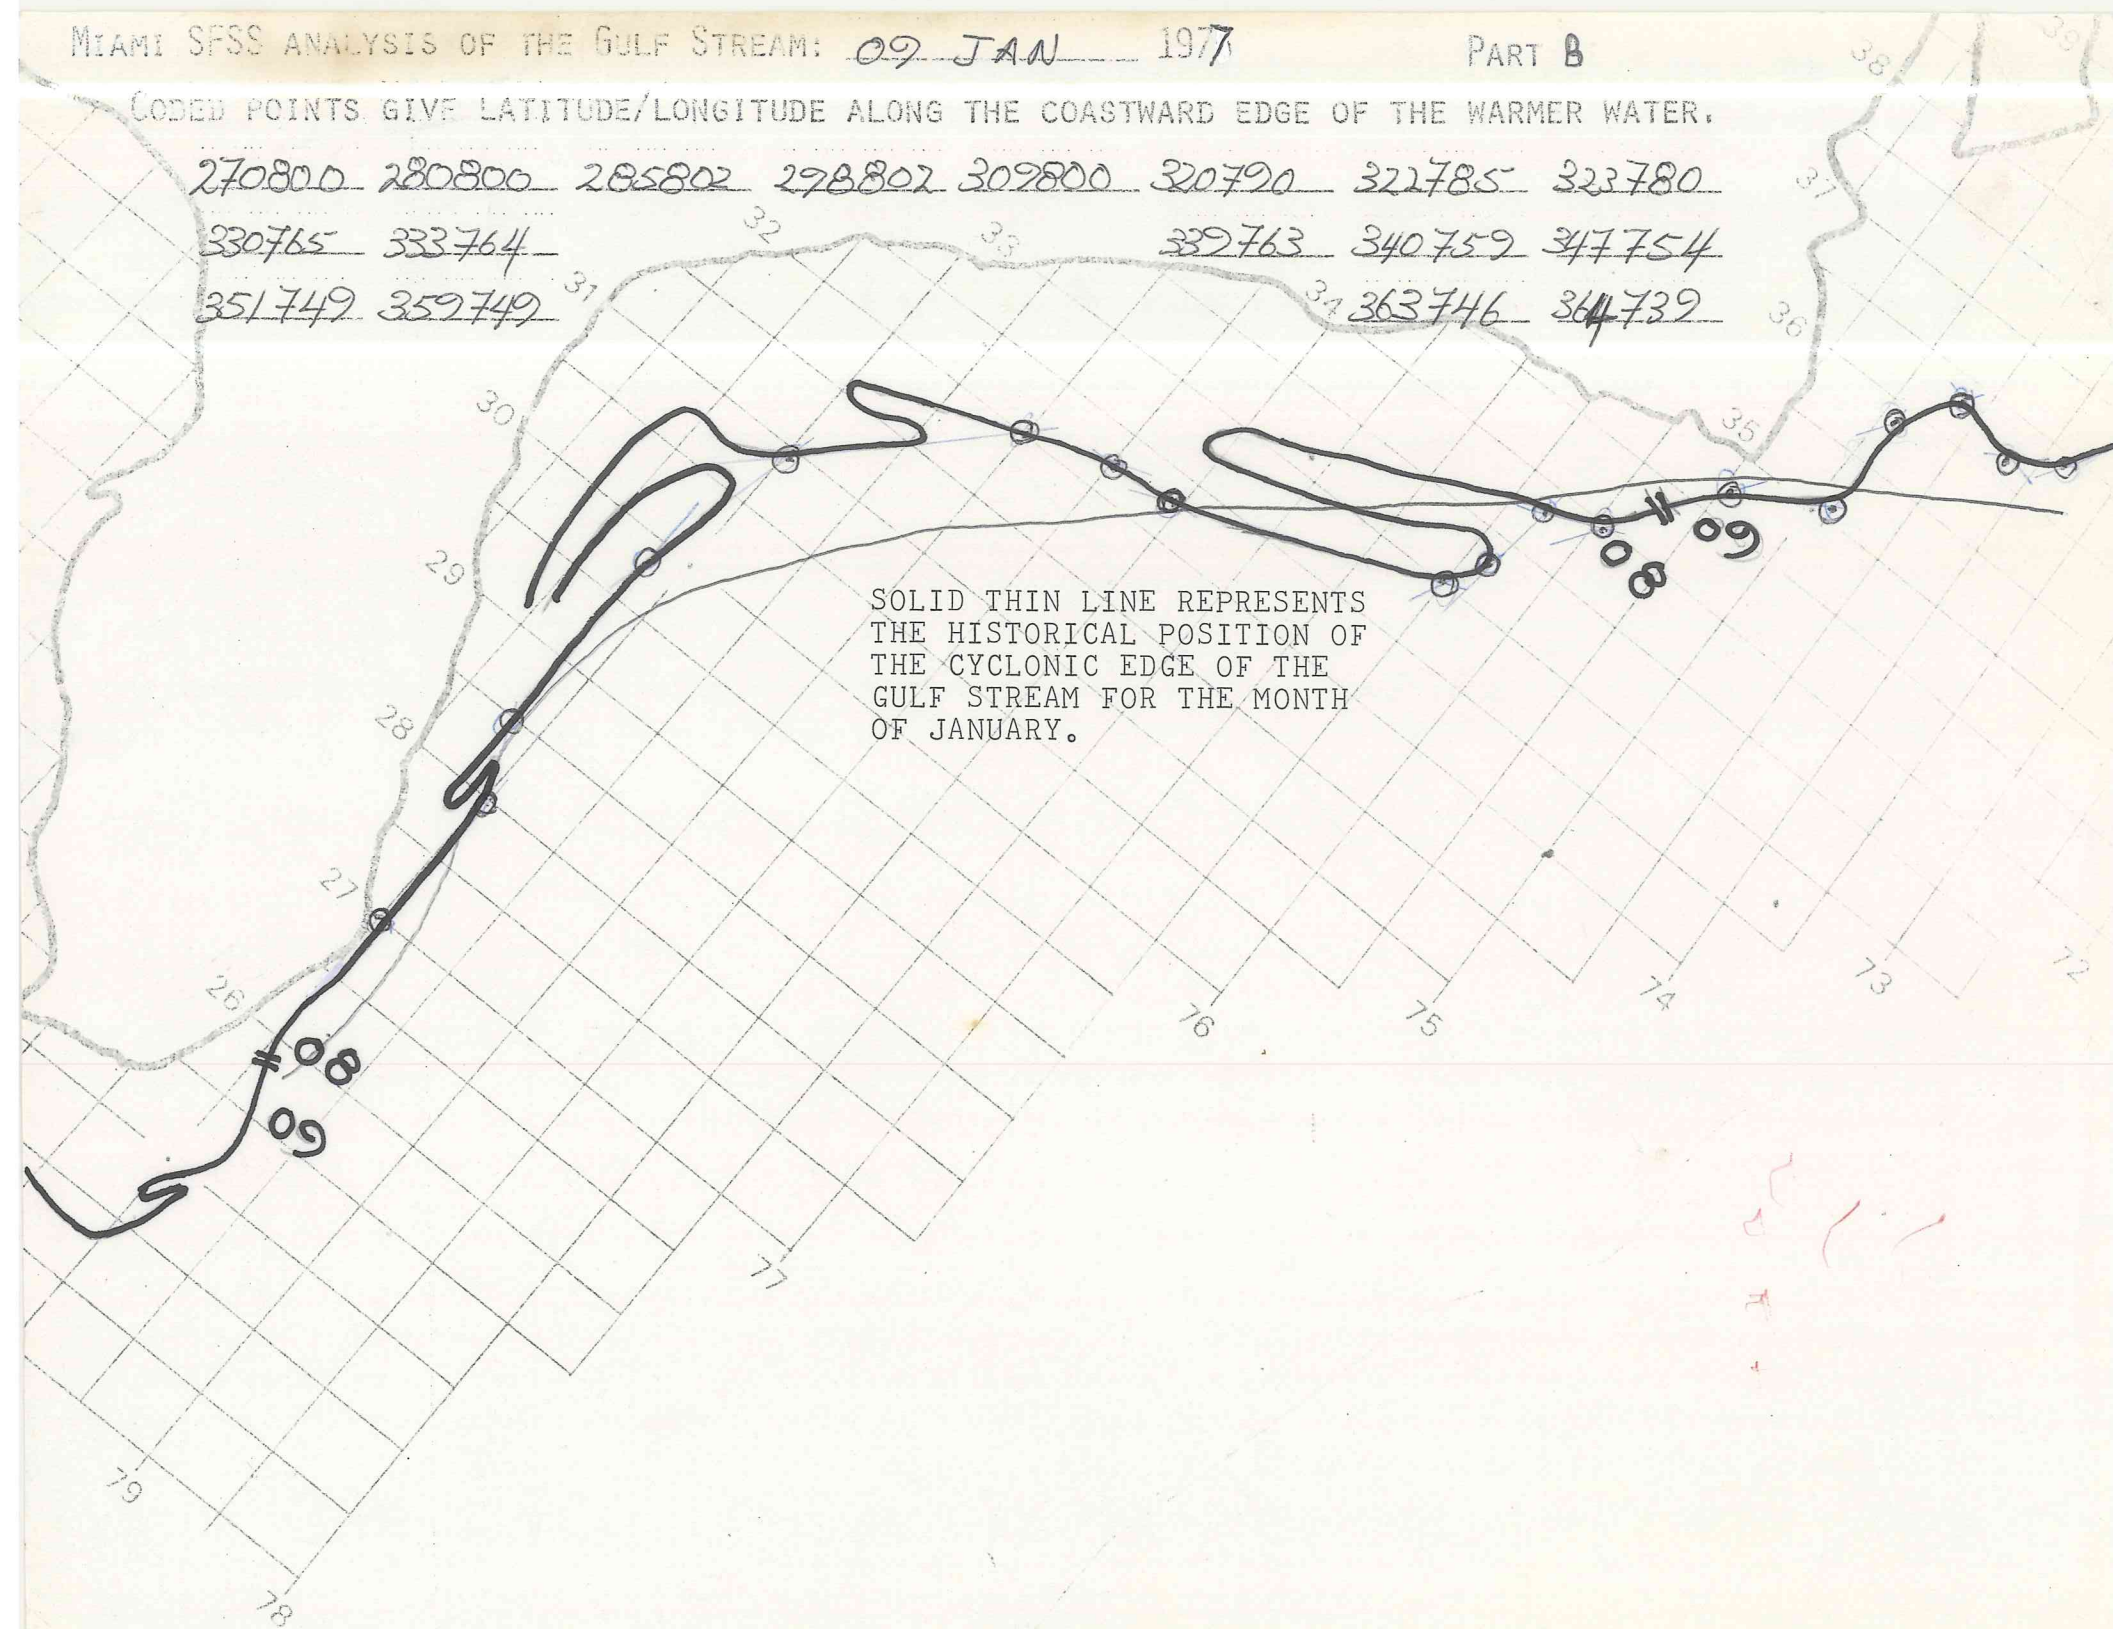 MIAMI SFSS ANALYSIS OF THE GULF STREAM: 09 JAN 1977 PART B
CODED POINTS GIVE LATITUDE/LONGITUDE ALONG THE COASTWARD EDGE OF THE WARMER WATER.
270800 280800 285802 298802 309800 320790 322785 323780
330765 333764 339763 340759 347754
351749 359749 363746 364739
39
38
37
36
35
34
33
32
31
30
29
28
27
26
09
08
SOLID THIN LINE REPRESENTS
THE HISTORICAL POSITION OF
THE CYCLONIC EDGE OF THE
GULF STREAM FOR THE MONTH
OF JANUARY.
08
09
72
73
74
75
76
77
78
79